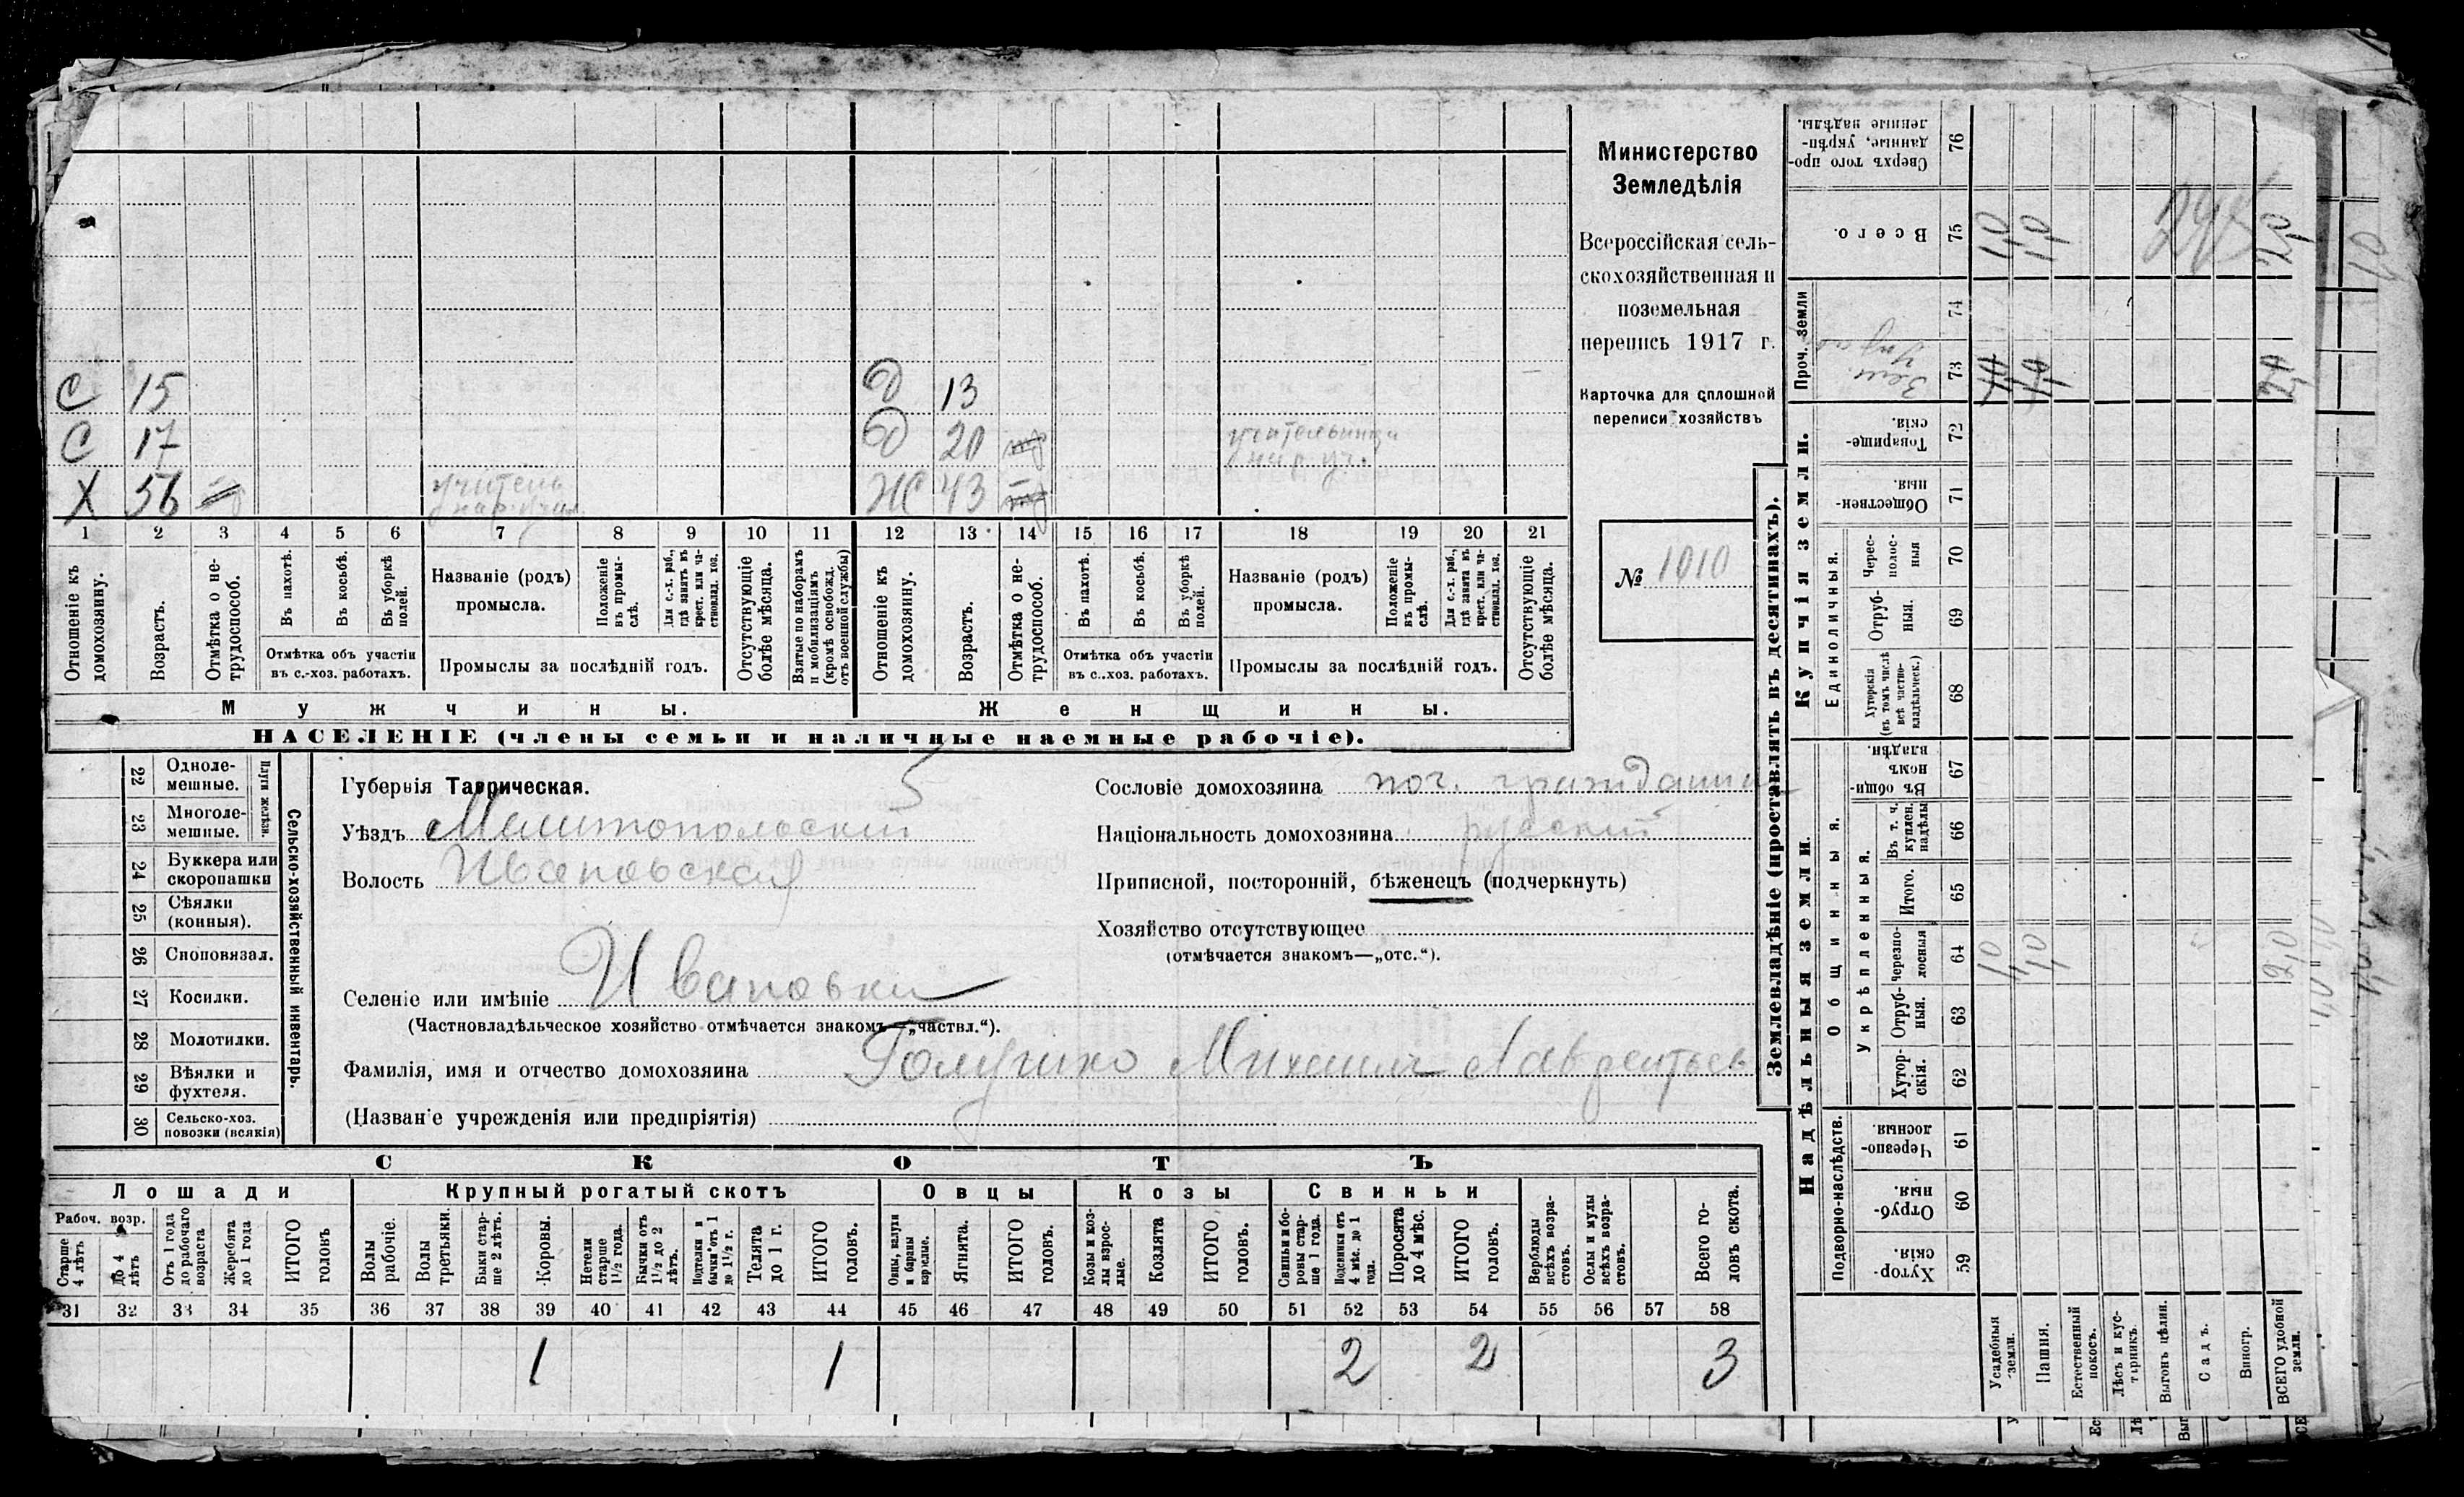 Министерство
Земледѣлія
Всероссійская сель-
скохозяйственная и
поземельная
перепись 1917 г.
Карточка для сплошной
переписи хозяйствъ
№ 1010
С 15 Д 13
С 17 Д 20 учительница
нар. уч.
Х 56 учитель Ж 43
нар. учил.
1 2 3 4 5 6 7 8 9 10 11 12 13 14 15 16 17 18 19 20 21
Отношеніе къ домохозяину.
Возрастъ.
Отмѣтка о не-
трудоспособ.
Въ пахотѣ.
Въ косьбѣ.
Въ уборкѣ
полей.
Отмѣтка объ участіи
въ с.-хоз. работахъ.
Названіе (родъ)
промысла.
Положеніе
въ промы-
слѣ.
Для с.-х. раб.,
гдѣ занятъ въ
крест. или ча-
стновлад. хоз.
Промыслы за послѣдній годъ.
Отсутствующіе
болѣе мѣсяца.
Взятые по наборамъ
и мобилизаціямъ
(кромѣ освобожд.
отъ военной службы)
Отношеніе къ
домохозяину.
Возрастъ.
Отмѣтка о не-
трудоспособ.
Въ пахотѣ.
Въ косьбѣ.
Въ уборкѣ
полей.
Отмѣтка объ участіи
въ с..хоз. работахъ.
Названіе (родъ)
промысла.
Положеніе
въ промы-
слѣ.
Для с.-х. раб.,
гдѣ занята въ
крест. или ча-
стновлад. хоз.
Промыслы за послѣдній годъ.
Отсутствующіе
болѣе мѣсяца.
Мужчины.
Женщины.
НАСЕЛЕНІЕ (члены семьи и наличные наемные рабочіе).
Сельско-хозяйственный инвентарь.
Плуги желѣзн.
22 Одноле-
мешные.
23 Многоле-
мешные.
24 Буккера или
скоропашки
25 Сѣялки
(конныя).
26 Сноповязал.
27 Косилки.
28 Молотилки.
29 Вѣялки и
фухтеля.
30 Сельско-хоз.
повозки (всякія)
Губернія Таврическая. 5
Уѣздъ Мелитопольскій
Волость Ивановская
Селеніе или имѣніе Ивановка
(Частновладѣльческое хозяйство отмѣчается знакомъ—„частвл.“).
Фамилія, имя и отчество домохозяина Михаилъ Лаврентьев
(Названіе учрежденія или предпріятія)
Сословіе домохозяина поч. гражданин
Національность домохозяина русскій
Приписной, посторонній, бѣженецъ (подчеркнуть)
Хозяйство отсутствующее
(отмѣчается знакомъ—„отс.“).
СКОТЪ
Лошади
Крупный рогатый скотъ
Овцы
Козы
Свиньи
Рабоч. возр.
Старше
4 лѣтъ
До 4
лѣтъ
Отъ 1 года
до рабочаго
возраста
Жеребята
до 1 года
ИТОГО
головъ
Волы
рабочіе.
Волы
третьяки.
Быки стар-
ше 2 лѣтъ.
Коровы.
Нетели
старше
1½ года.
Бычки отъ
1½ до 2
лѣтъ.
Подтелки и
бычки отъ 1
до 1½ г.
Телята
до 1 г.
ИТОГО
головъ.
Овцы, валухи
и бараны
взрослые.
Ягнята.
ИТОГО
головъ.
Козы и коз-
лы взрос-
лые.
Козлята
ИТОГО
головъ.
Свиньи и бо-
ровы стар-
ше 1 года.
Подсвинки отъ
4 мѣс. до 1
года.
Поросята
до 4 мѣс.
ИТОГО
головъ.
Верблюды
всѣхъ возра-
стовъ.
Ослы и мулы
всѣхъ возра-
стовъ.
Всего го-
ловъ скота.
31 32 33 34 35 36 37 38 39 40 41 42 43 44 45 46 47 48 49 50 51 52 53 54 55 56 57 58
1 1 2 2 3
Землевладѣніе (проставлять въ десятинахъ).
Надѣльныя земли.
Купчія земли.
Проч. земли
Подворно-наслѣдств.
Общинныя.
Укрѣпленныя.
Единоличныя.
Хутор-
скія. 59
Отруб-
ныя. 60
Черезпо-
лосныя. 61
Хутор-
скія. 62
Отруб-
ныя. 63
Черезпо-
лосныя 64
Итого. 65
Въ т. ч.
куплен.
надѣлы 66
Въ общи-
номъ
владѣн. 67
Хуторскія
(въ томъ числѣ
всѣ частно-
владѣльческ.) 68
Отруб-
ныя. 69
Черес-
полос-
ныя 70
Обществен-
ныя. 71
Товарище-
скія. 72
73
74
Всего. 75
Сверхъ того про-
данные, укрѣп-
ленные надѣлы. 76
Усадебныя
земли.
Пашня.
Естественный
покосъ.
Лѣсъ и кус-
тарникъ.
Выгонъ цѣлин.
Садъ.
Виногр.
ВСЕГО удобной
земли.